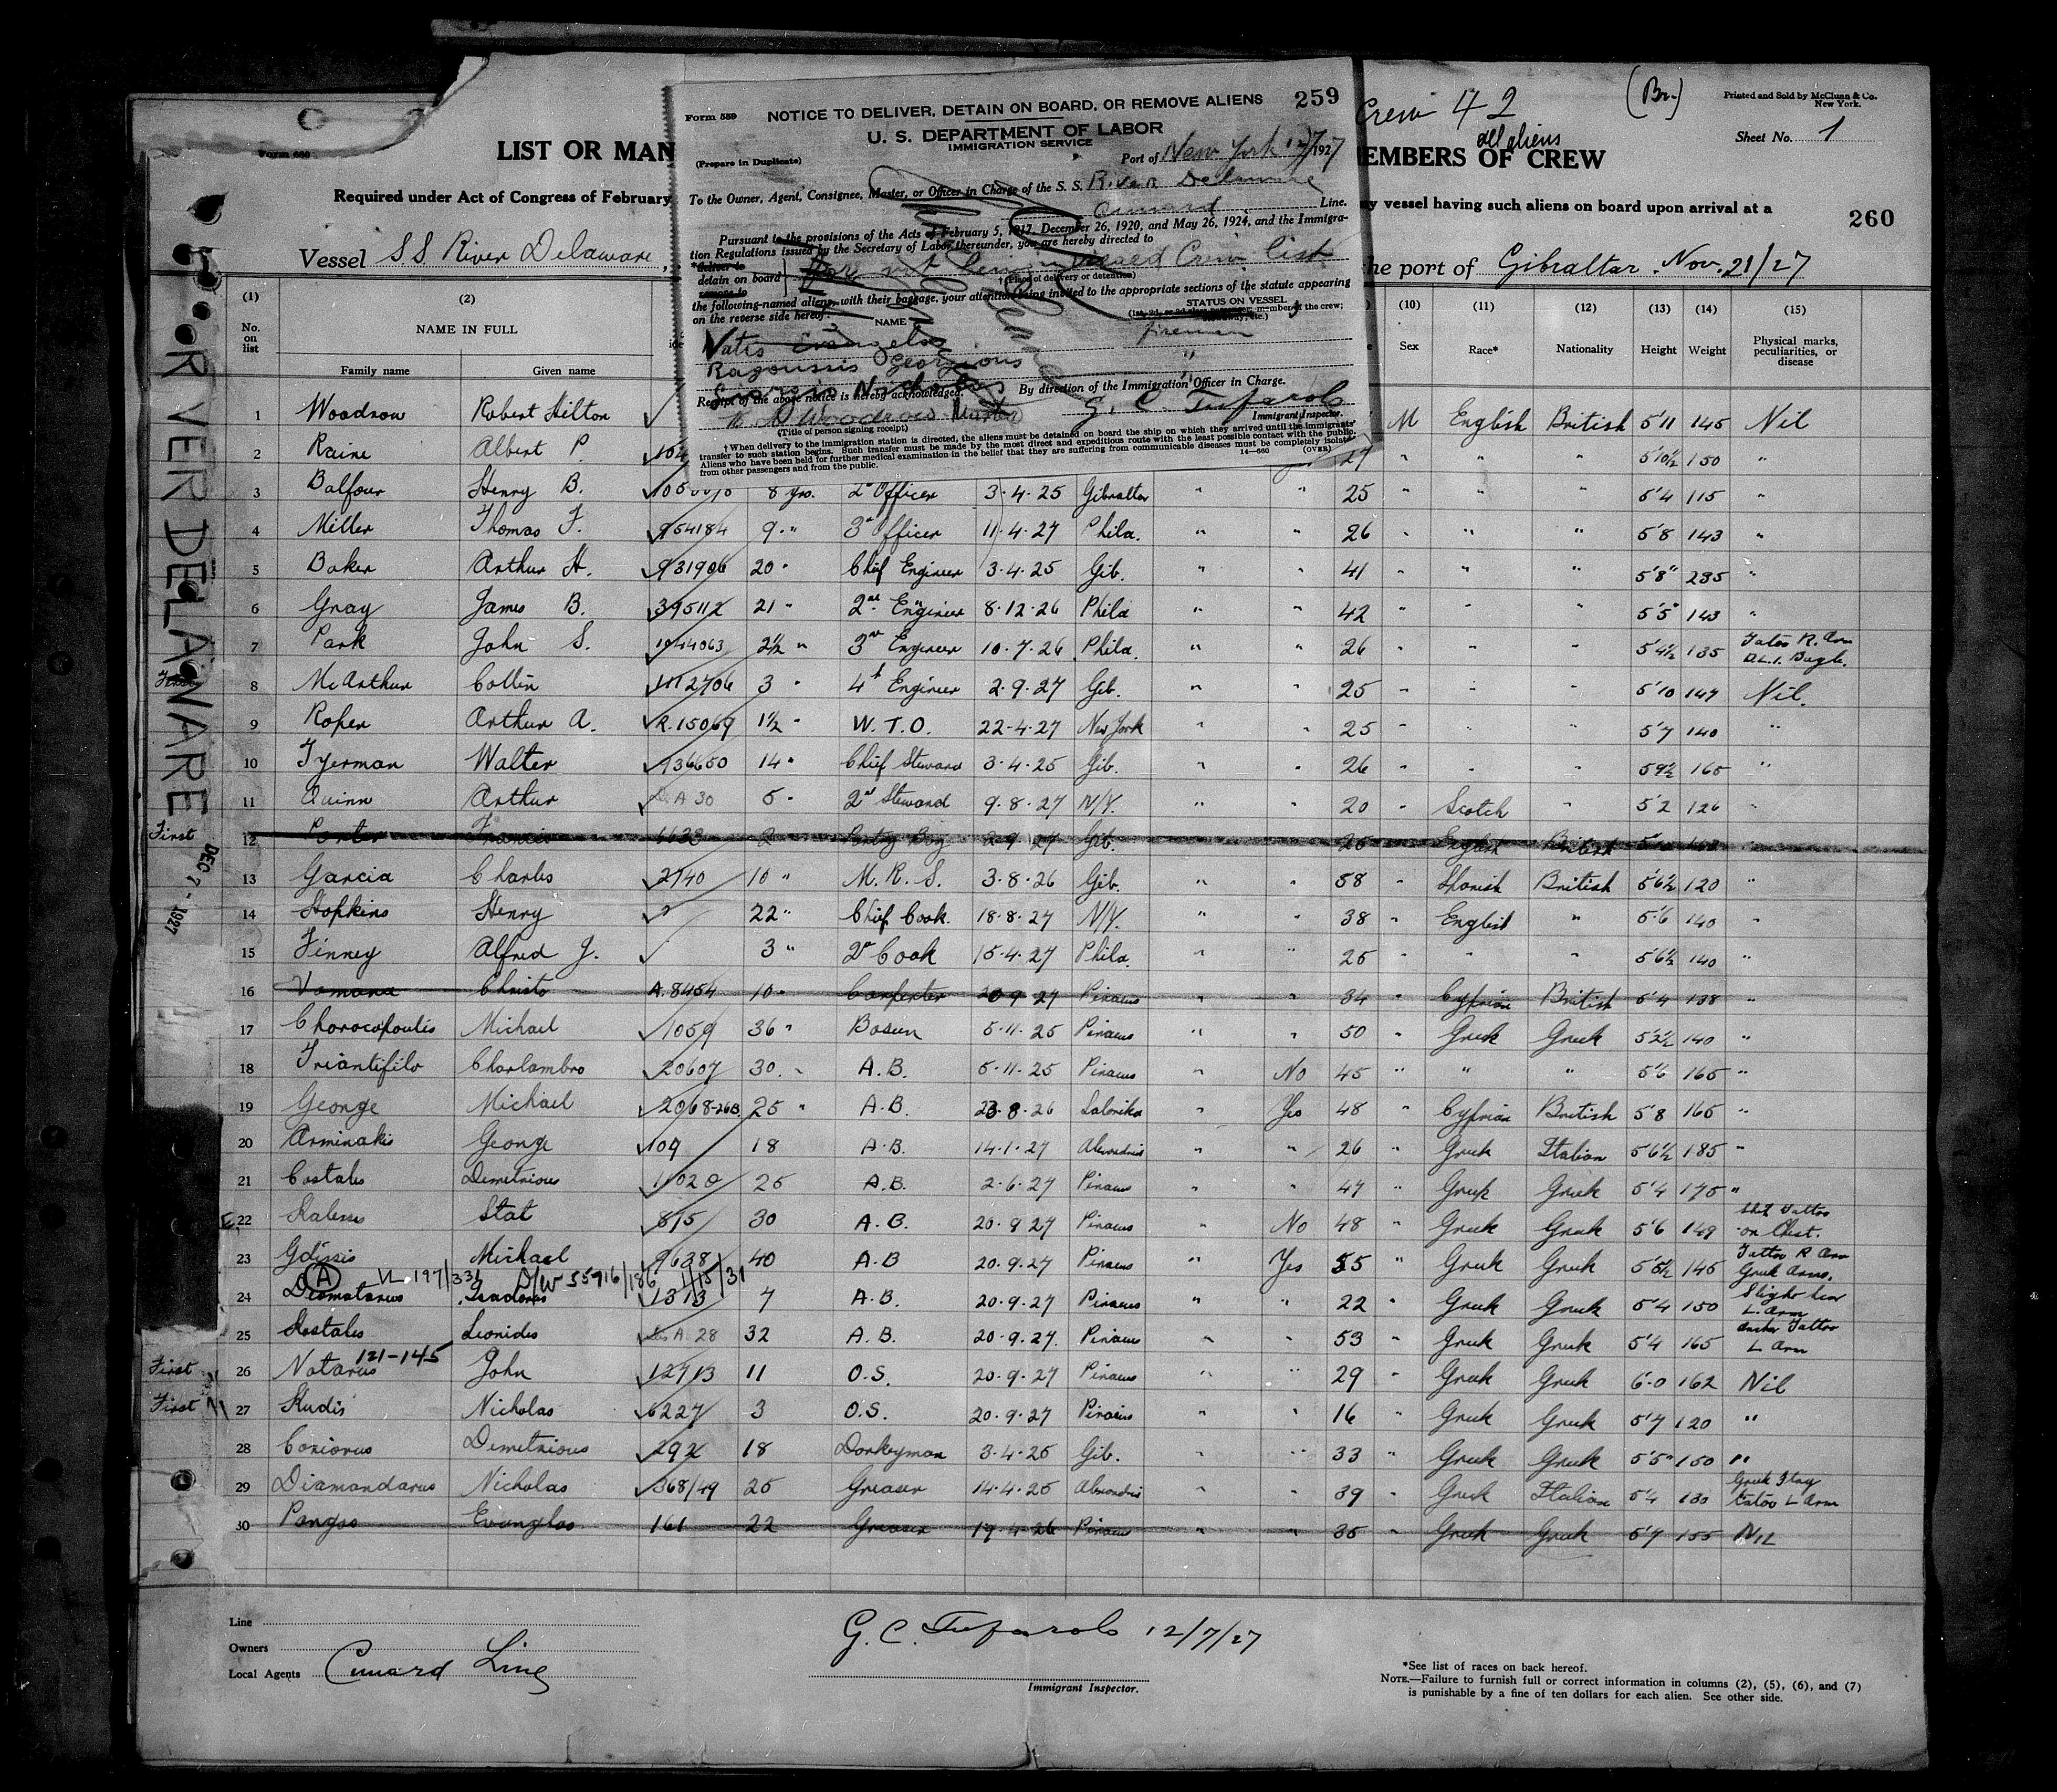 Form 559
NOTICE TO DELIVER, DETAIN ON BOARD, OR REMOVE ALIENS
259
U. S. DEPARTMENT OF LABOR
IMMIGRATION SERVICE
(Prepare in Duplicate)
Port of New York 12/7/1927
To the Owner, Agent, Consignee, Master, or Officer in Charge of the S. S. River Delaware
Cunard Line.
Pursuant to the provisions of the Acts of February 5, 1917, December 26, 1920, and May 26, 1924, and the Immigra-
tion Regulations issued by the Secretary of Labor thereunder, you are hereby directed to
*deliver to
detain on board
remove to
Crew List
†(Place of delivery or detention)
the following-named aliens, with their baggage, your attention being invited to the appropriate sections of the statute appearing
on the reverse side hereof:
NAME
STATUS ON VESSEL
(1st, 2d, or 3d class passenger, member of the crew;
Vatis Evangelos fireman
Ragoussis Georgious "
Nicholas "
By direction of the Immigration Officer in Charge.
Receipt of the above notice is hereby acknowledged.
Woodrow Master
G. C. Tufarolo
Immigrant Inspector.
(Title of person signing receipt)
†When delivery to the immigration station is directed, the aliens must be detained on board the ship on which they arrived until the immigrants'
transfer to such station begins. Such transfer must be made by the most direct and expeditious route with the least possible contact with the public.
Aliens who have been held for further medical examination in the belief that they are suffering from communicable diseases must be completely isolated
from other passengers and from the public.
14—660 (OVER)
Crew 42
(Br.)
all aliens
Printed and Sold by McClunn & Co.
New York.
Sheet No. 1
LIST OR MAN
EMBERS OF CREW
Required under Act of Congress of February
y vessel having such aliens on board upon arrival at a
260
Vessel S.S River Delaware,
he port of Gibraltar. Nov. 21/27
(1) (2) (10) (11) (12) (13) (14) (15)
No. on list
NAME IN FULL
Family name Given name
Sex Race* Nationality Height Weight Physical marks, peculiarities, or disease
RIVER DELAWARE
DEC 7 - 1927
1 Woodrow Robert Hilton M English British 5'11 145 Nil
2 Raine Albert P. 27 " " " 5'10½ 150
3 Balfour Henry B. 8 yrs. 2 Officer 3.4.25 Gibralter " 25 " " " 5'4 115 "
4 Miller Thomas F. 954184 9 " 3 Officer 11.4.27 Phila. " " 26 " " " 5'8 143 "
5 Baker Arthur H. 931906 20 " Chief Engineer 3.4.25 Gib. " " 41 " " " 5'8" 235 "
6 Gray James B. 395112 21 " 2nd Engineer 8.12.26 Phila " " 42 " " " 5'5" 143 "
7 Park John S. 1044063 2½ " 3rd Engineer 10.7.26 Phila. " " 26 " " " 5'4½ 135 Tatoo R. Arm
8 McArthur Collin 1012706 3 " 4th Engineer 2.9.27 Gib. " " 25 " " " 5'10 147 Nil.
9 Roper Arthur A. R.15069 1½ " W.T.O. 22-4-27 New York " 25 " " " 5'7 140 "
10 Tyerman Walter 936650 14 " Chief Steward 3.4.25 Gib. " " 26 " " " 5 9½ 165 "
11 Quinn Arthur A 30 5 " 2nd Steward 9.8.27 N/Y. " " 20 " Scotch " 5'2 126 "
First 12 Porter Francis 1633 2 Pantry Boy 2.9.27 Gib. 25 English British
13 Garcia Charles 2740 10 " M.R.S. 3.8.26 Gib. " " 58 " Spanish British 5'6½ 120 "
14 Hopkins Henry 22 " Chief Cook. 18.8.27 N/Y. " " 38 " English " 5'6 140 "
15 Finney Alfred J. 3 " 2nd Cook 15.4.27 Phila. " " 25 " " " 5'6½ 140 "
16 Vamana Christo A.8454 10 " Carpenter 20 9 27 Piraeus " " 34 " Cyprian British 5'4 138 "
17 Chorocopoulis Michael 1059 36 " Bosun 5.11.25 Piraeus " " 50 " Greek Greek 5'2½ 140 "
18 Triantifilo Charlambro 20607 30 " A.B. 5.11.25 Piraeus " No 45 " " " 5'6 165 "
19 George Michael 2068-26B. 25 " A.B. 23.8.26 Salonika " Yes 48 " Cyprian British 5'8 165 "
20 Arminakis George 109 18 A.B. 14.1.27 " " 26 " Greek Italian 5'6½ 185 "
21 Costales Demetrious 11020 25 A.B. 2.6.27 Piraeus " " 47 " Greek Greek 5'4 175 "
22 Stat 815 30 A.B. 20.9 27 Piraeus " No 48 " Greek Greek 5'6 149 Tattoo on Chest.
23 Michael 9638 40 A.B 20.9.27 Piraeus " Yes 55 " Greek Greek 5'5½ 145 Tattoo R Arm
(A) VL 197/331 D/W 55916/186 1/15/31
24 Diamatarus Isadoros 1313 7 A.B. 20.9.27 Piraeus " " 22 " Greek Greek 5'4 150 Slight Scar L. Arm
25 Kostales Leonides A 28 32 A.B. 20.9.27. Piraeus " " 53 " Greek Greek 5'4 165 Anchor Tattoo L Arm
121-145
First 26 Notarus John 12713 11 O.S. 20.9.27 Piraeus " " 29 " Greek Greek 6.0 162 Nil
First 27 Kudis Nicholas 6227 3 O.S. 20.9.27 Piraeus " " 16 " Greek Greek 5'7 120 "
28 Demetrious 292 18 Donkeyman 3.4.25 Gib. " " 33 " Greek Greek 5'5" 150 "
29 Diamandarus Nicholas 368/49 25 Greaser 14.4.25 " " 39 " Greek Italian 5'4 130 Greek Flag tatoo L Arm
30 Pangos Evanglos 161 22 Greaser 19.4.26 Piraeus " " 35 " Greek Greek 5'7 155 Nil
Line
Owners
Local Agents Cunard Line
G. C. Tufarolo 12/7/27
Immigrant Inspector.
*See list of races on back hereof.
NOTE.—Failure to furnish full or correct information in columns (2), (5), (6), and (7)
is punishable by a fine of ten dollars for each alien. See other side.